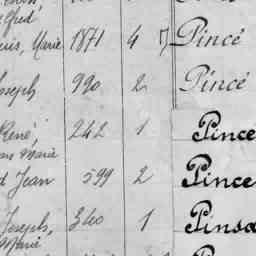 fred
uis, Marie 1871 4 Pincé
oseph 990 2 Pincé
René 242 1 Pince
Marie
d Jean 599 2 Pince
Joseph, 340 1 Pinsa
Marie